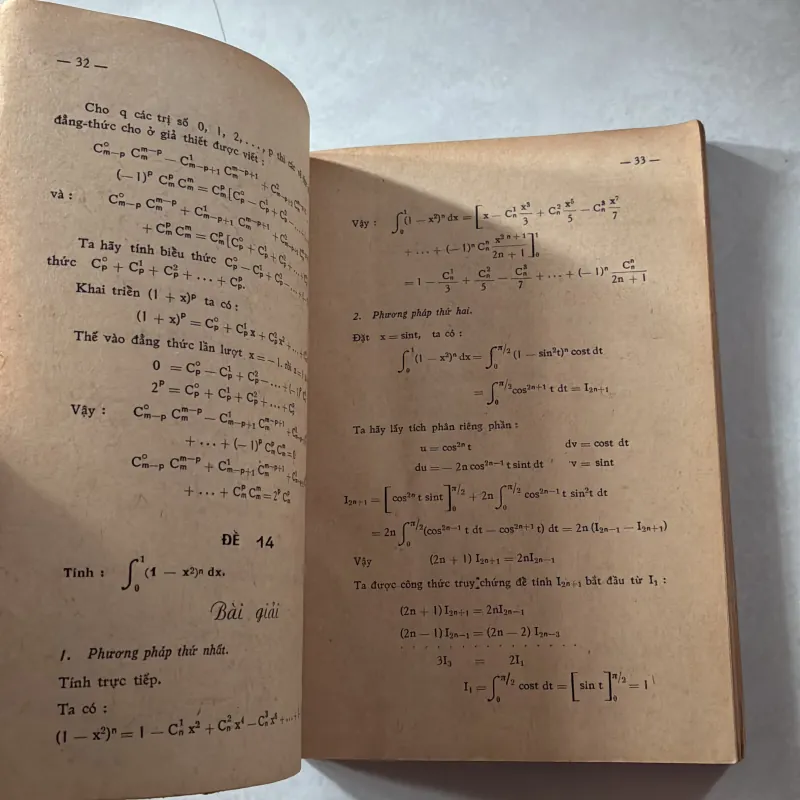 — 32 —
Cho q các trị số 0, 1, 2, ..., p thì các
đẳng-thức cho ở giả thiết được viết :
C⁰ₘ₋ₚ Cₘᵐ⁻ᵖ — C¹ₘ₋ₚ₊₁ Cₘᵐ⁻ᵖ⁺¹ + C²ₘ₋ₚ₊₂
(—1)ᵖ Cᵖₘ Cᵐₘ = Cᵖₘ [C⁰ₚ — C¹ₚ + C²ₚ — ...
và : C⁰ₘ₋ₚ Cₘᵐ⁻ᵖ + C¹ₘ₋ₚ₊₁ Cₘᵐ⁻ᵖ⁺¹ + C²ₘ₋ₚ₊₂
+ Cᵖₘ Cᵐₘ = Cᵖₘ [C⁰ₚ + C¹ₚ + C²ₚ + ...
Ta hãy tính biểu thức C⁰ₚ — C¹ₚ + C²ₚ — ...
thức C⁰ₚ + C¹ₚ + C²ₚ + ... + Cᵖₚ.
Khai triển (1 + x)ᵖ ta có :
(1 + x)ᵖ = C⁰ₚ + C¹ₚ x + C²ₚ x² + ... +
Thế vào đẳng thức lần lượt x = — 1,
0 = C⁰ₚ — C¹ₚ + C²ₚ — ... + (—1)ᵖ
2ᵖ = C⁰ₚ + C¹ₚ + C²ₚ + ... + Cᵖₚ
Vậy : C⁰ₘ₋ₚ Cₘᵐ⁻ᵖ — C¹ₘ₋ₚ₊₁ Cₘᵐ⁻ᵖ⁺¹ +
+ ... + (—1)ᵖ Cᵖₘ Cᵐₘ = 0
C⁰ₘ₋ₚ Cₘᵐ⁻ᵖ + C¹ₘ₋ₚ₊₁ Cₘᵐ⁻ᵖ⁺¹ +
+ ... + Cᵖₘ Cᵐₘ = 2ᵖ Cᵖₘ
ĐỀ 14
Tính : ∫₀¹ (1 — x²)ⁿ dx.
Bài giải
1. Phương pháp thứ nhất.
Tính trực tiếp.
Ta có :
(1 — x²)ⁿ = 1 — C¹ₙ x² + C²ₙ x⁴ — C³ₙ x⁶ + ... +
— 33 —
Vậy : ∫₀¹ (1 — x²)ⁿ dx = [x — C¹ₙ x³/3 + C²ₙ x⁵/5 — C³ₙ x⁷/7
+ ... + (—1)ⁿ Cⁿₙ x²ⁿ⁺¹/(2n + 1)]₀¹
= 1 — C¹ₙ/3 + C²ₙ/5 — C³ₙ/7 + ... + (—1)ⁿ Cⁿₙ/(2n + 1)
2. Phương pháp thứ hai.
Đặt x = sint, ta có :
∫₀¹ (1 — x²)ⁿ dx = ∫₀^π/2 (1 — sin²t)ⁿ cost dt
= ∫₀^π/2 cos²ⁿ⁺¹ t dt = I₂ₙ₊₁
Ta hãy lấy tích phân riêng phần :
u = cos²ⁿ t dv = cost dt
du = — 2n cos²ⁿ⁻¹ t sint dt v = sint
I₂ₙ₊₁ = [cos²ⁿ t sint]₀^π/2 + 2n ∫₀^π/2 cos²ⁿ⁻¹ t sin²t dt
= 2n ∫₀^π/2 (cos²ⁿ⁻¹ t dt — cos²ⁿ⁺¹ t) dt = 2n (I₂ₙ₋₁ — I₂ₙ₊₁)
Vậy (2n + 1) I₂ₙ₊₁ = 2nI₂ₙ₋₁
Ta được công thức truy chứng để tính I₂ₙ₊₁ bắt đầu từ I₁ :
(2n + 1) I₂ₙ₊₁ = 2nI₂ₙ₋₁
(2n — 1) I₂ₙ₋₁ = (2n — 2) I₂ₙ₋₃
. . . . . . . . . . . . . . . . .
3I₃ = 2I₁
I₁ = ∫₀^π/2 cost dt = [sin t]₀^π/2 = 1